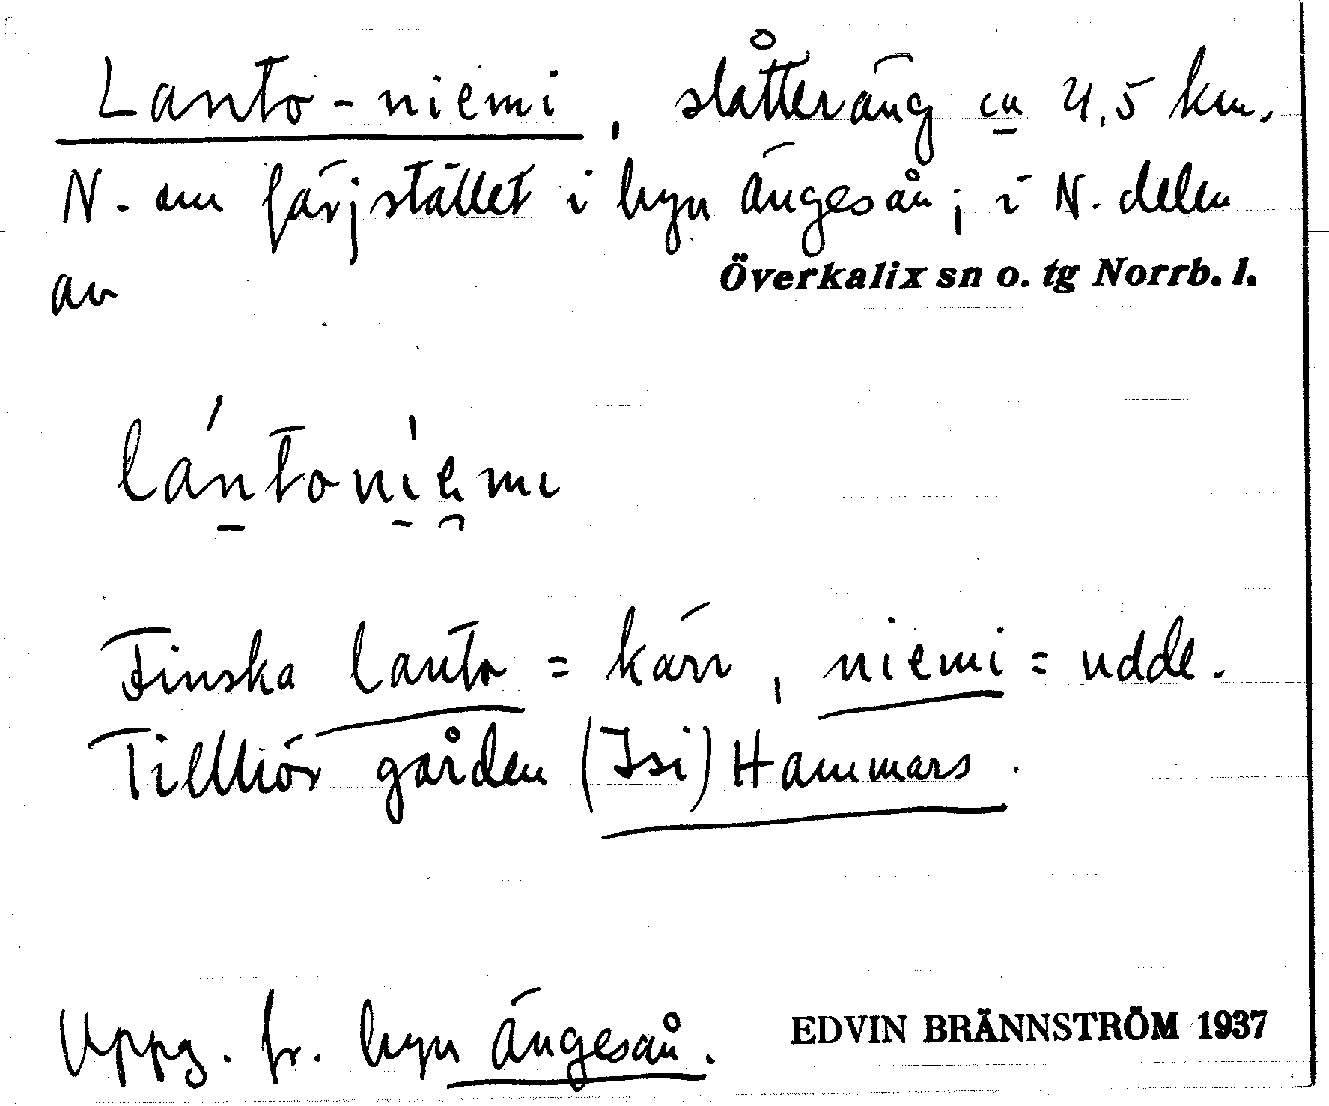 Lanto-niemi, slåtteräng ca 4,5 km.
N. om färjstället i byn Ängesån; i N. delen
av Överkalix sn o. tg Norrb. l.
lántoniemi
Finska lanto = kärr, niemi = udde.
Tillhör gården (Isi) Hammars.
Uppg. fr. byn Ängesån.
EDVIN BRÄNNSTRÖM 1937